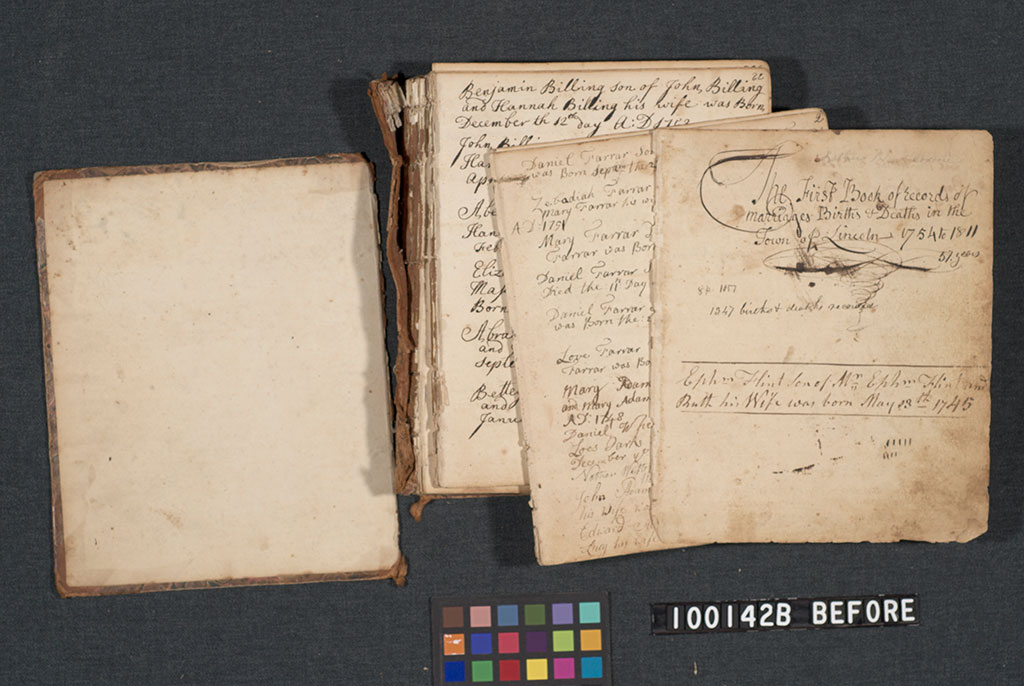 22
Benjamin Billing son of John Billing
and Hannah Billing his wife was Born
December th 12th day A:D 1752
John Billi
Han
Apr
Abe
Han
Feb
Eliz
Map
Born
Abra
and
Septe
Bettey
and
Janu
2
Daniel Farrar Son
was Born Septr the 2
Zebadiah Farrar
Mary Farrar his wi
A D: 1751
Mary Farrar
Farrar was Born
Daniel Farrar
Died the 11 Day
Daniel Farrar
was Born the
Love Farrar
Farrar was Bo
Mary Adam
and Mary Adam
AD: 1748
Daniel Wife
Loes Parks
December
John Adam
his wife wa
Edward
Lucy his wife
The First Book of records of
marriages Births & Deaths in the
Town of Lincoln 1754 to 1811
57 years
1347 births & deaths recorded
Ephm Flint son of Mr Ephm Flint and
Ruth his Wife was born May 23th 1745
100142B BEFORE